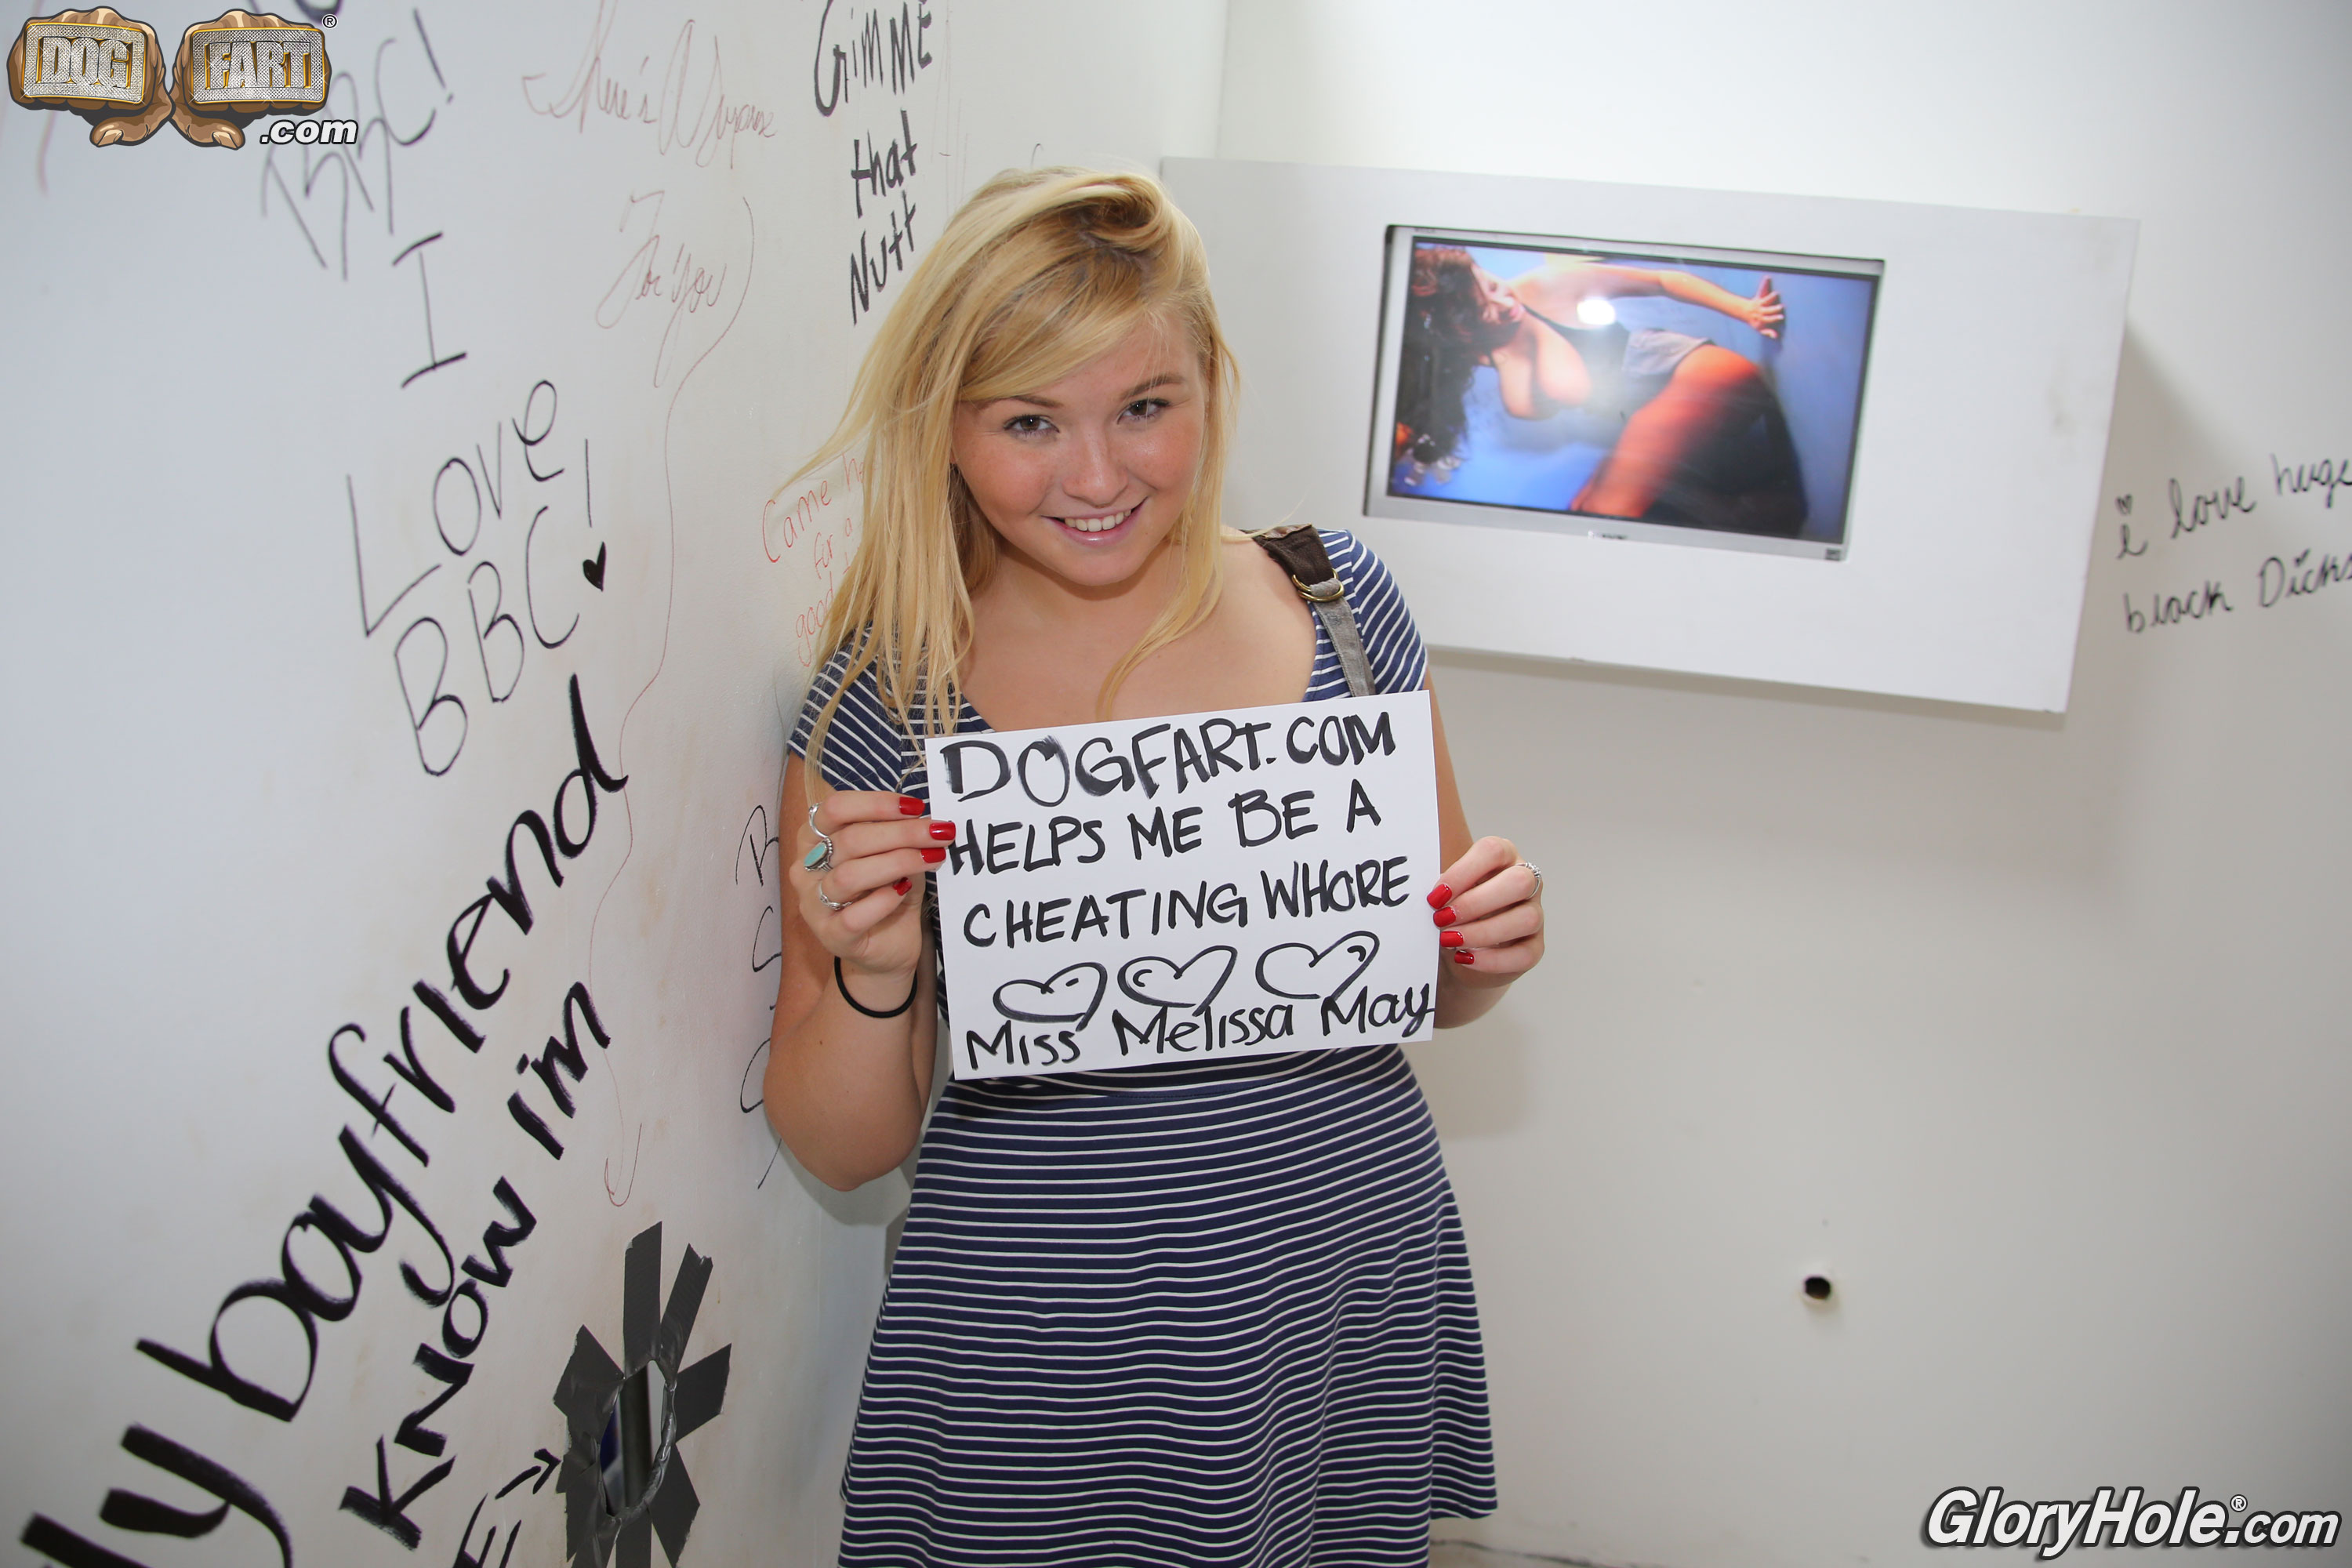 DOG FART®
.com
BBC!
Here's A Suprise
For You
GIMME
that
Nutt
I
Love
BBC!
Came
for a
good
boyfriend
Know i'm
i love huge
black Dicks
DOGFART.COM
HELPS ME BE A
CHEATING WHORE
Miss Melissa May
GloryHole®.com